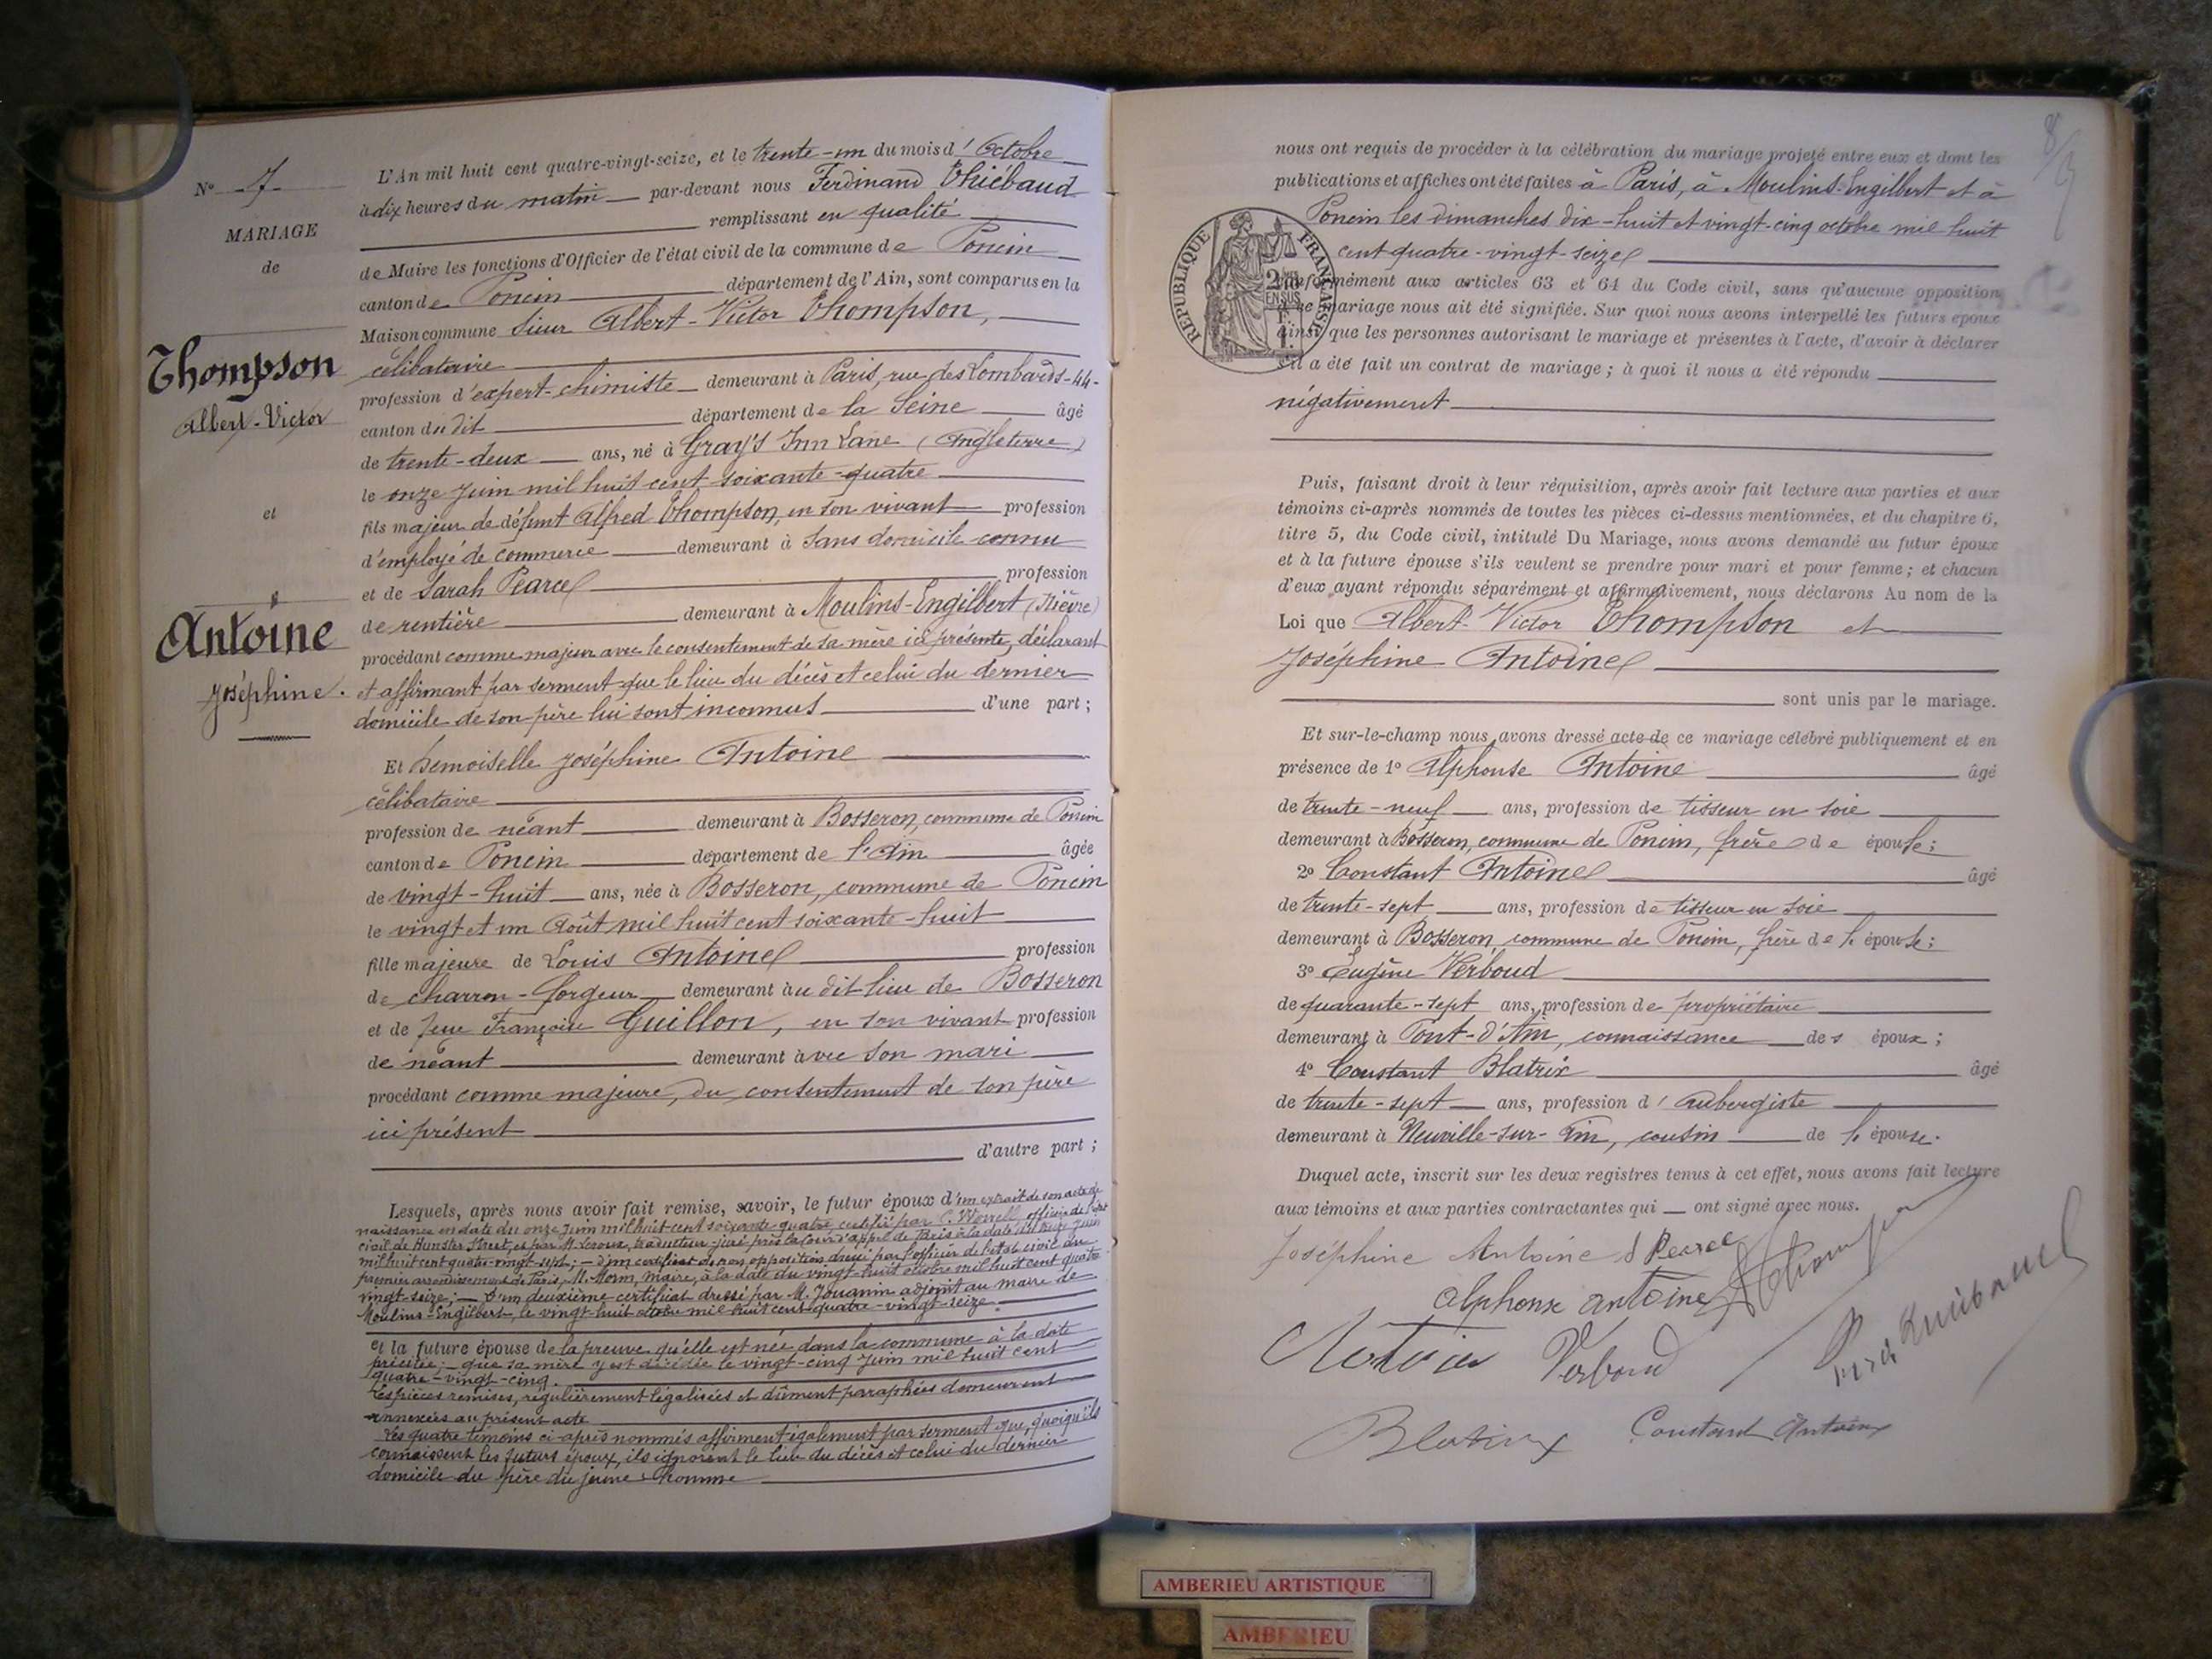 N° 7
MARIAGE
de
Thompson
Albert-Victor
et
Antoine
Joséphine.
L'An mil huit cent quatre-vingt-seize, et le trente-un du mois d'Octobre
à dix heures du matin par-devant nous Ferdinand Thiébaud
remplissant en qualité
de Maire les fonctions d'Officier de l'état civil de la commune de Poncin
canton de Poncin département de l'Ain, sont comparus en la
Maison commune Sieur Albert-Victor Thompson,
célibataire
profession d'expert-chimiste demeurant à Paris, rue des Lombards-44-
canton du dit département de la Seine âgé
de trente-deux ans, né à Gray's Inn Lane (Angleterre)
le onze Juin mil huit cent soixante-quatre
fils majeur de défunt Alfred Thompson, en son vivant profession
d'employé de commerce demeurant à sans domicile connu
et de Sarah Pearce profession
de rentière demeurant à Moulins-Engilbert (Nièvre)
procédant comme majeur avec le consentement de sa mère ici présente, déclarant
et affirmant par serment que le lieu du décès et celui du dernier
domicile de son père lui sont inconnus d'une part;
Et Demoiselle Joséphine Antoine
célibataire
profession de néant demeurant à Bosseron, commune de Poncin
canton de Poncin département de l'Ain âgée
de vingt-huit ans, née à Bosseron, commune de Poncin
le vingt et un Août mil huit cent soixante-huit
fille majeure de Louis Antoine profession
de charron-forgeur demeurant au dit lieu de Bosseron
et de feue Françoise Guillon, en son vivant profession
de néant demeurant avec son mari
procédant comme majeure, du consentement de son père
ici présent
d'autre part;
Lesquels, après nous avoir fait remise, savoir, le futur époux d'un extrait de son acte de
naissance en date du onze Juin mil huit cent soixante-quatre, certifié par C. Worrell, officier de l'état
civil de Hunster Street, et par M. Leroux, traducteur-juré près la Cour d'appel de Paris à la date du Juin
mil huit cent quatre-vingt-sept; - d'un certificat de non opposition dressé par l'officier de l'état civil du
premier arrondissement de Paris, M. Morin, maire, à la date du vingt-huit octobre mil huit cent quatre
vingt-seize; - d'un deuxième certificat dressé par M. Jouanin adjoint au maire de
Moulins-Engilbert, le vingt-huit octobre mil huit cent quatre-vingt-seize.
et la future épouse de la preuve qu'elle est née dans la commune à la date
précitée; - que sa mère y est décédée le vingt-cinq Juin mil huit cent
quatre-vingt-cinq.
Les pièces remises, régulièrement légalisées et dûment paraphées demeurent
annexées au présent acte
Les quatre témoins ci-après nommés affirment également par serment que, quoiqu'ils
connaissent les futurs époux, ils ignorent le lieu du décès et celui du dernier
domicile du père du jeune homme
nous ont requis de procéder à la célébration du mariage projeté entre eux et dont les
publications et affiches ont été faites à Paris, à Moulins-Engilbert et à
Poncin les dimanches dix-huit et vingt-cinq octobre mil huit
cent quatre-vingt-seize
RÉPUBLIQUE FRANÇAISE
conformément aux articles 63 et 64 du Code civil, sans qu'aucune opposition
à ce mariage nous ait été signifiée. Sur quoi nous avons interpellé les futurs époux
ainsi que les personnes autorisant le mariage et présentes à l'acte, d'avoir à déclarer
s'il a été fait un contrat de mariage; à quoi il nous a été répondu
négativement
Puis, faisant droit à leur réquisition, après avoir fait lecture aux parties et aux
témoins ci-après nommés de toutes les pièces ci-dessus mentionnées, et du chapitre 6,
titre 5, du Code civil, intitulé Du Mariage, nous avons demandé au futur époux
et à la future épouse s'ils veulent se prendre pour mari et pour femme; et chacun
d'eux ayant répondu séparément et affirmativement, nous déclarons Au nom de la
Loi que Albert-Victor Thompson et
Joséphine Antoine
sont unis par le mariage.
Et sur-le-champ nous avons dressé acte de ce mariage célébré publiquement et en
présence de 1° Alphonse Antoine âgé
de trente-neuf ans, profession de tisseur en soie
demeurant à Bosseron, commune de Poncin, frère de épouse;
2° Constant Antoine âgé
de trente-sept ans, profession de tisseur en soie
demeurant à Bosseron, commune de Poncin, frère de l'épouse;
3° Eugène Verboud
de quarante-sept ans, profession de propriétaire
demeurant à Pont-d'Ain, connaissance des époux;
4° Constant Blatrix âgé
de trente-sept ans, profession d'aubergiste
demeurant à Neuville-sur-Ain, cousin de l'épouse.
Duquel acte, inscrit sur les deux registres tenus à cet effet, nous avons fait lecture
aux témoins et aux parties contractantes qui ont signé avec nous.
Joséphine Antoine S Pearce
Alphonse Antoine A Thompson
Antoine Verboud
Blatrix Constant Antoine
AMBERIEU ARTISTIQUE
AMBERIEU